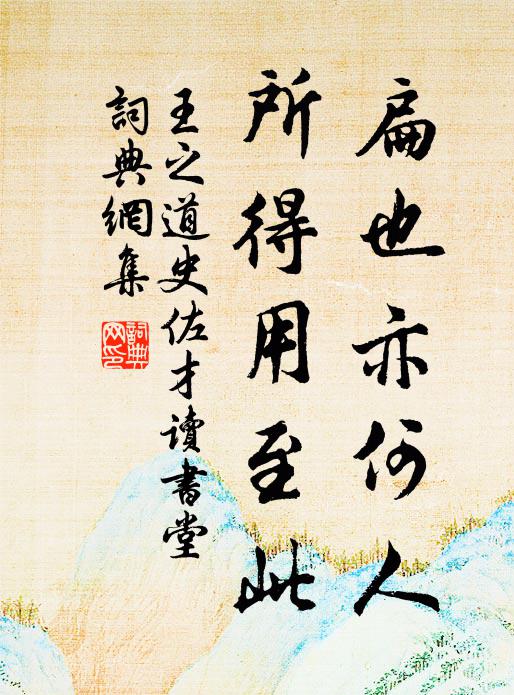 扁也亦何人
所得用至此
王之道史佐才讀書堂
詞典網集
詞典
网印